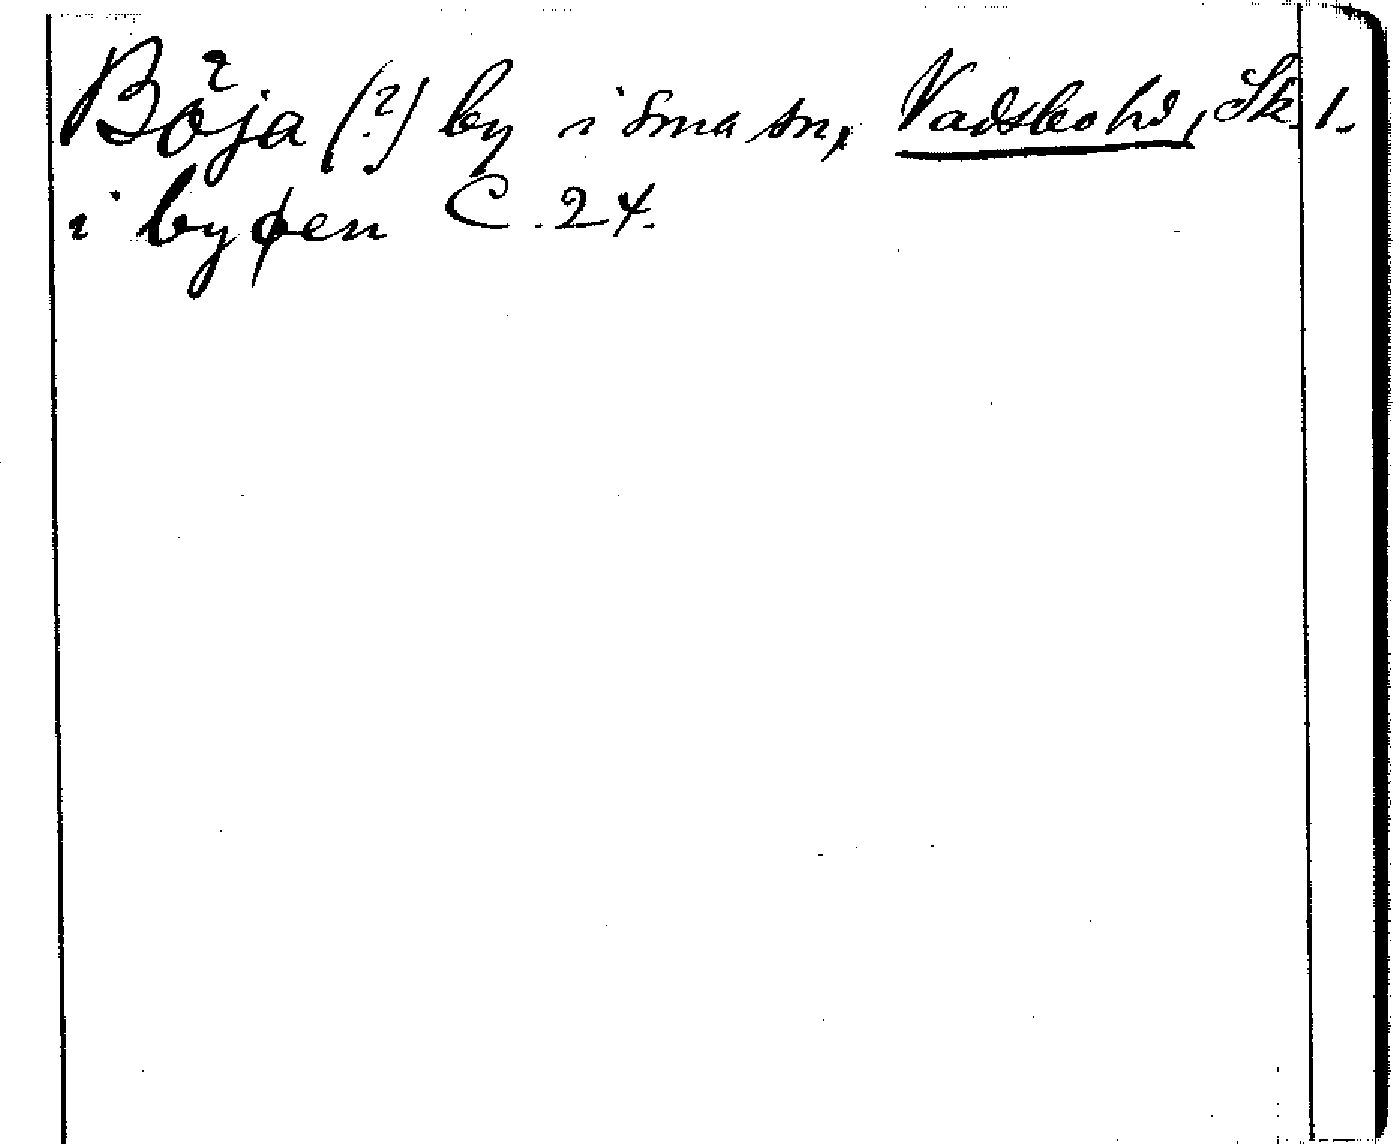 Böja (?) by i sma sn, Vadsbo hd, Sk. l.
i byþen C. 24.